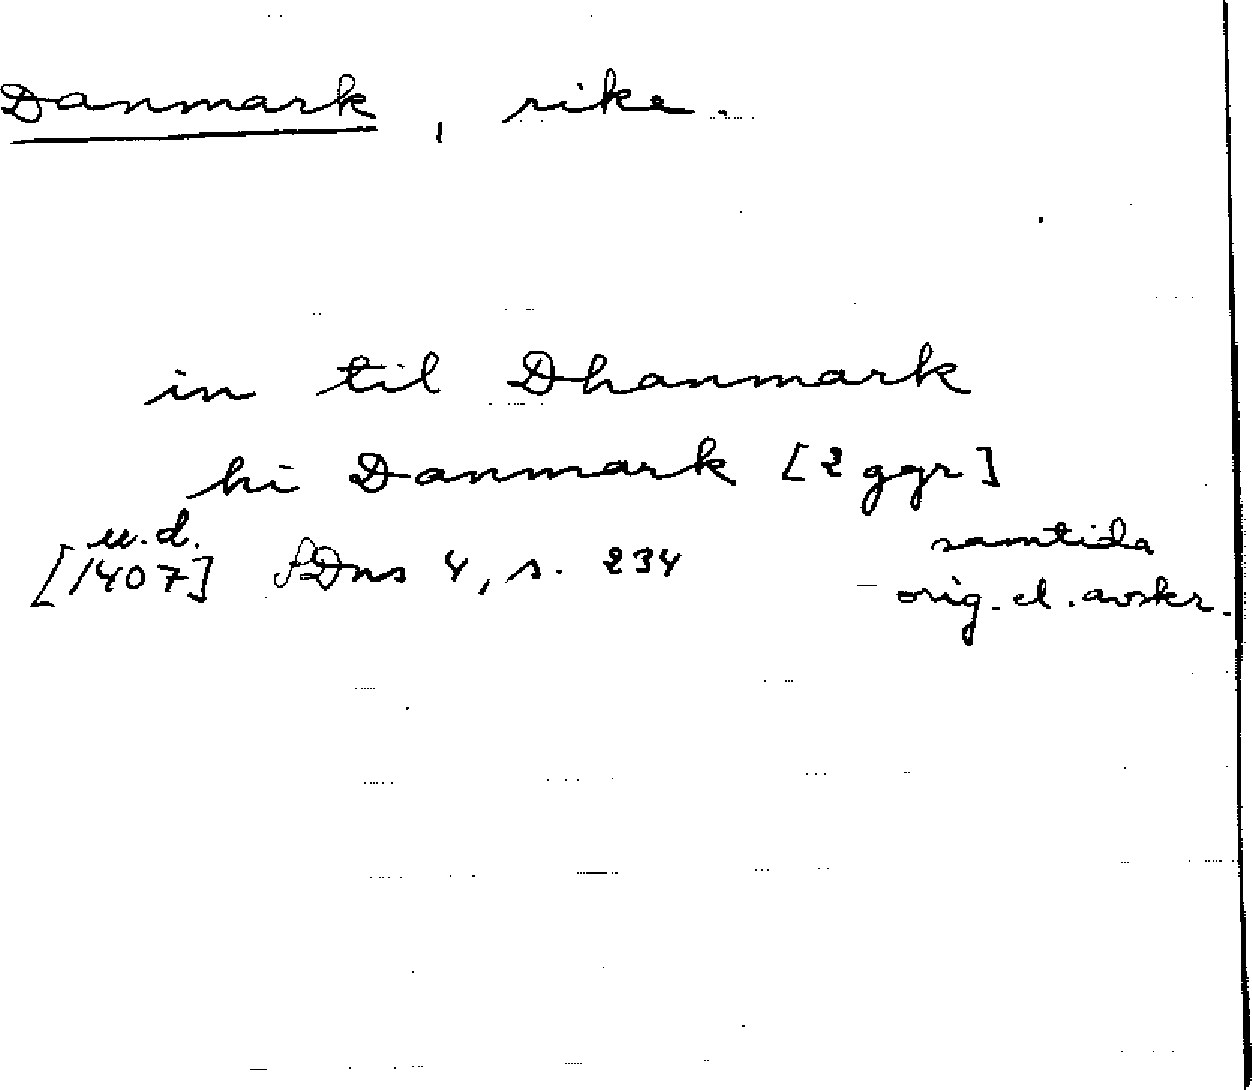 Danmark, rike.
in til Dhanmark
hi Danmark [2 ggr]
u.d.
[1407] SDns 4, s. 234
samtida
orig. el. avskr.